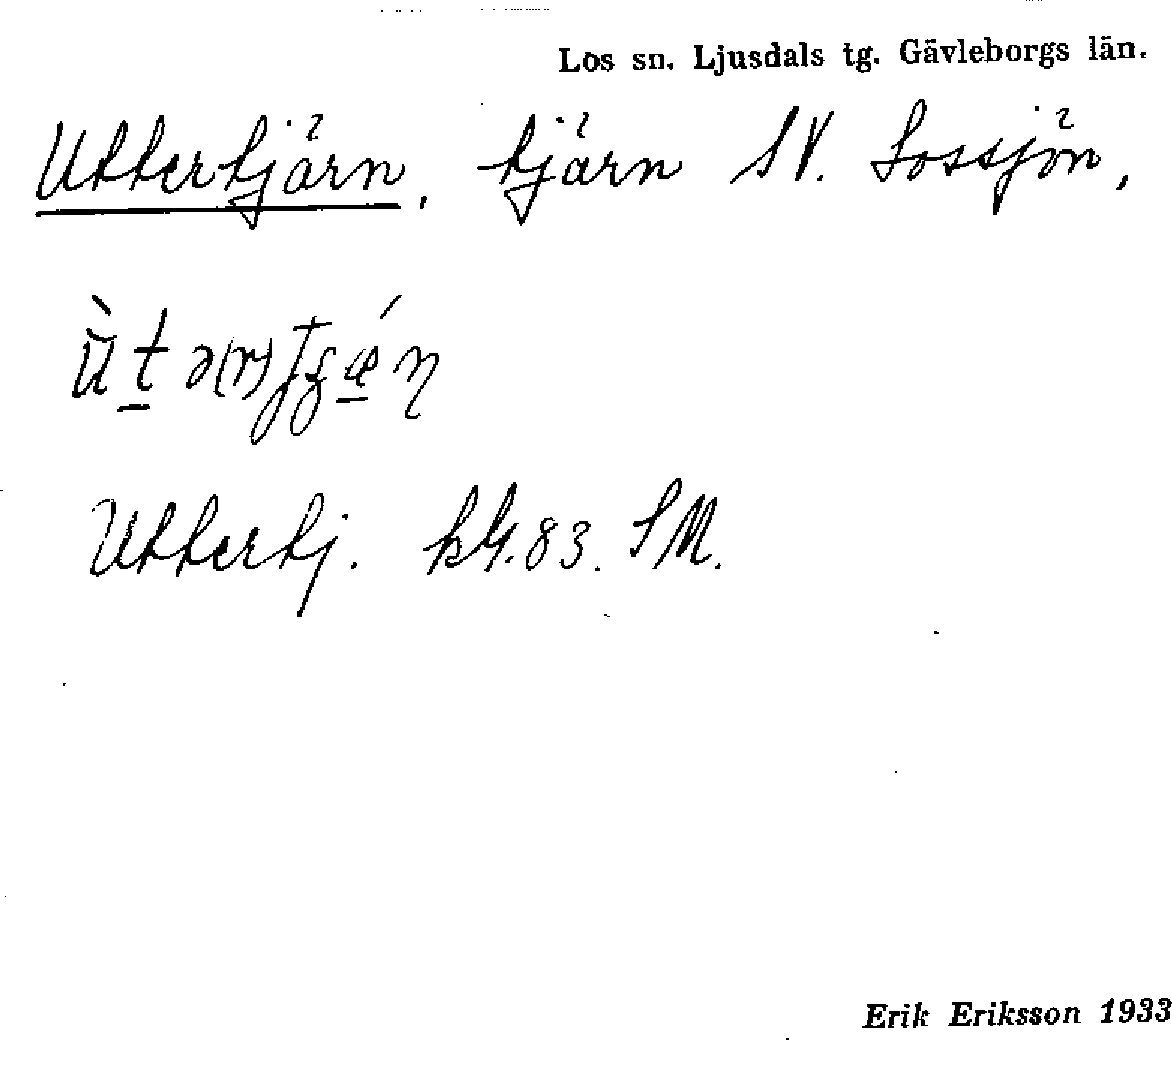 Los sn. Ljusdals tg. Gävleborgs län.
Uttertjärn, tjärn SV. Lossjön,
Uttertj. bl. 83. SM.
Erik Eriksson 1933